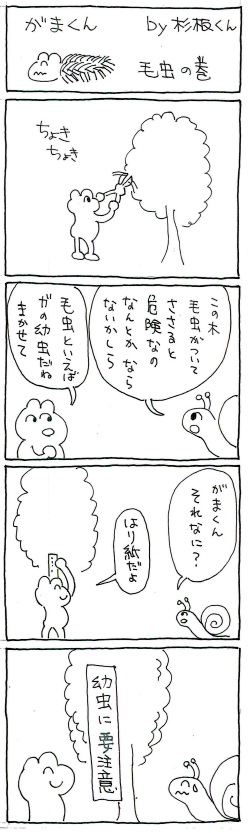 がまくん
by杉板くん
毛虫の巻
ちょき
ちょき
この木
毛虫がついて
ささると
危険なの
なんとかなら
ないかしら
毛虫といえば
ガの幼虫だね
まかせて
がまくん
それなに？
はり紙だよ
幼虫に要注意